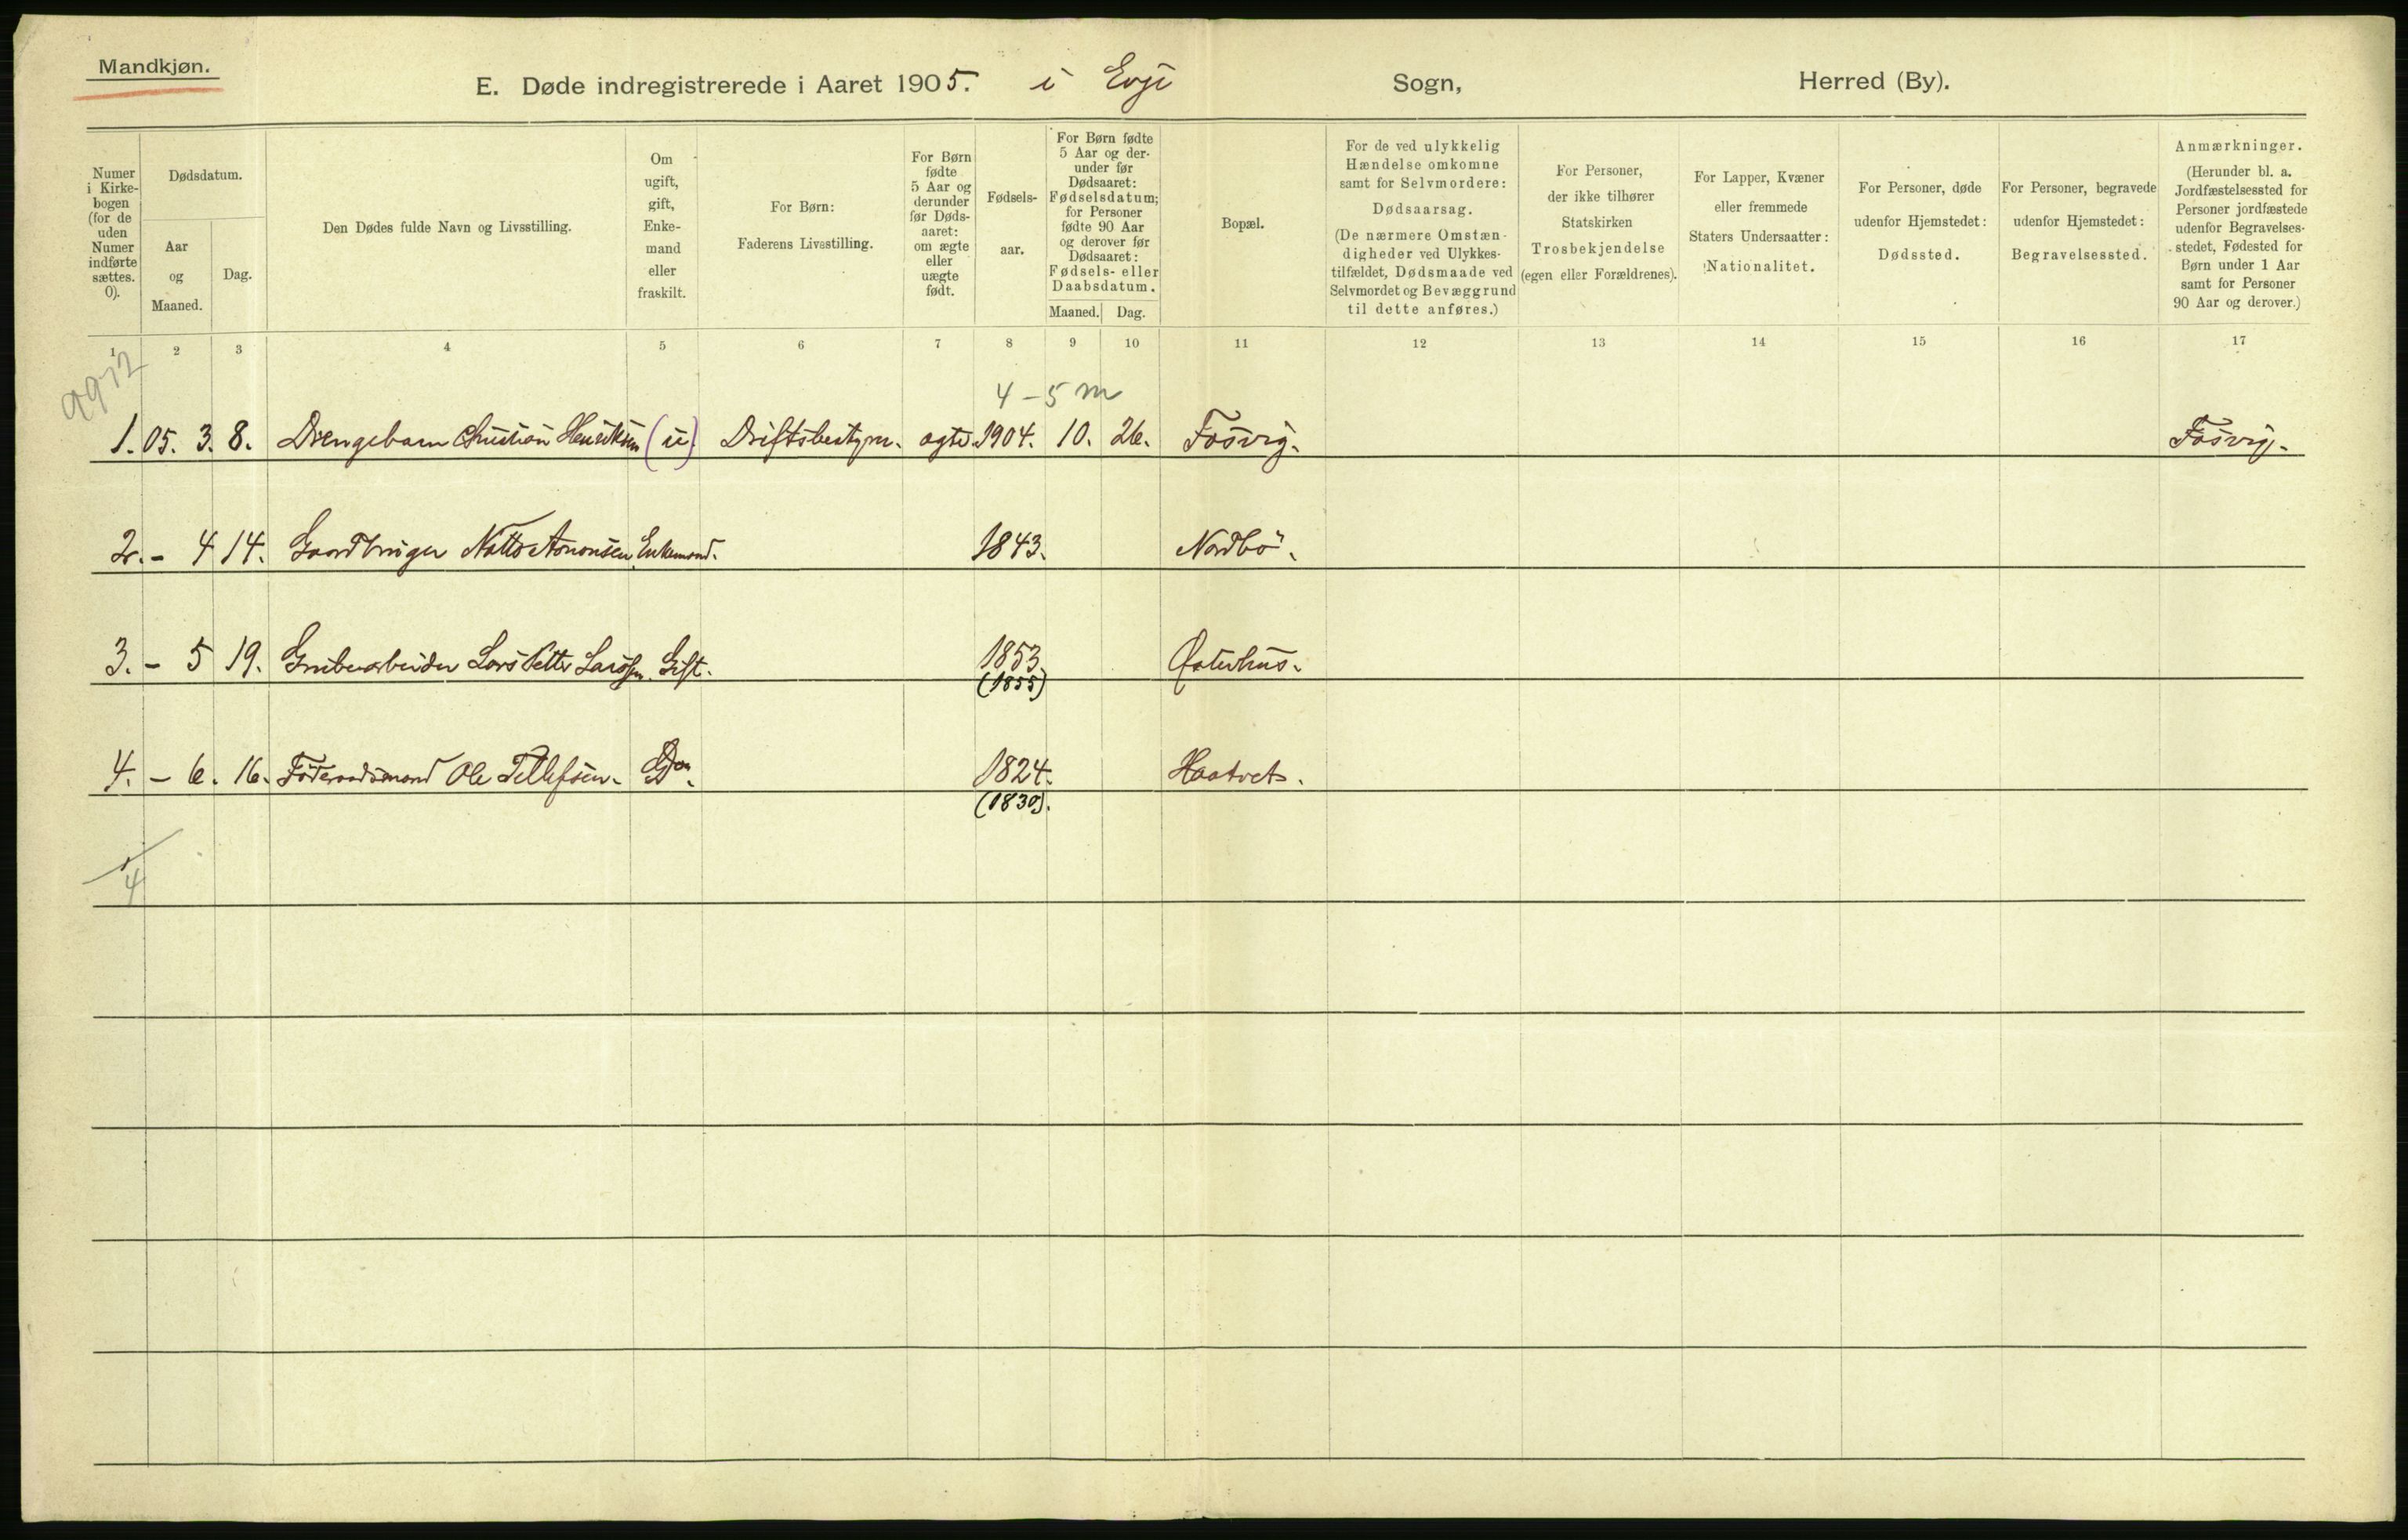 Mandkjøn.
E. Døde indregistrerede i Aaret 1905. i Evje Sogn, Herred (By).
Numer i Kirkebogen (for de uden Numer indførte sættes. 0).
Dødsdatum.
Aar og Maaned.
Dag.
Den Dødes fulde Navn og Livsstilling.
Om ugift, gift, Enkemand eller fraskilt.
For Børn: Faderens Livsstilling.
For Børn fødte 5 Aar og derunder før Dødsaaret: om ægte eller uægte født.
Fødselsaar.
For Børn fødte 5 Aar og derunder før Dødsaaret: Fødselsdatum; for Personer fødte 90 Aar og derover før Dødsaaret: Fødsels- eller Daabsdatum.
Maaned. Dag.
Bopæl.
For de ved ulykkelig Hændelse omkomne samt for Selvmordere: Dødsaarsag. (De nærmere Omstændigheder ved Ulykkestilfældet, Dødsmaade ved Selvmordet og Bevæggrund til dette anføres.)
For Personer, der ikke tilhører Statskirken Trosbekjendelse (egen eller Forældrenes).
For Lapper, Kvæner eller fremmede Staters Undersaatter: Nationalitet.
For Personer, døde udenfor Hjemstedet: Dødssted.
For Personer, begravede udenfor Hjemstedet: Begravelsessted.
Anmærkninger. (Herunder bl. a. Jordfæstelsessted for Personer jordfæstede udenfor Begravelsesstedet, Fødested for Børn under 1 Aar samt for Personer 90 Aar og derover.)
1 2 3 4 5 6 7 8 9 10 11 12 13 14 15 16 17
4-5 m
1. 05. 3. 8. Drengebarn Christian Henriksen (u) Driftsbestyrer. ægte. 1904. 10. 26. Fosvig. Fosvig.
2. - 4 14. Gaardbruger Enkemand. 1843. Nordbö.
3. - 5 19. Grubearbeider Lars Petter Larssen. Gift. 1853. Østerhus.
(1855)
4. - 6. 16. Föderaadsmand Ole Tellefsen. Do. 1824. Haatvet.
(1830).
4